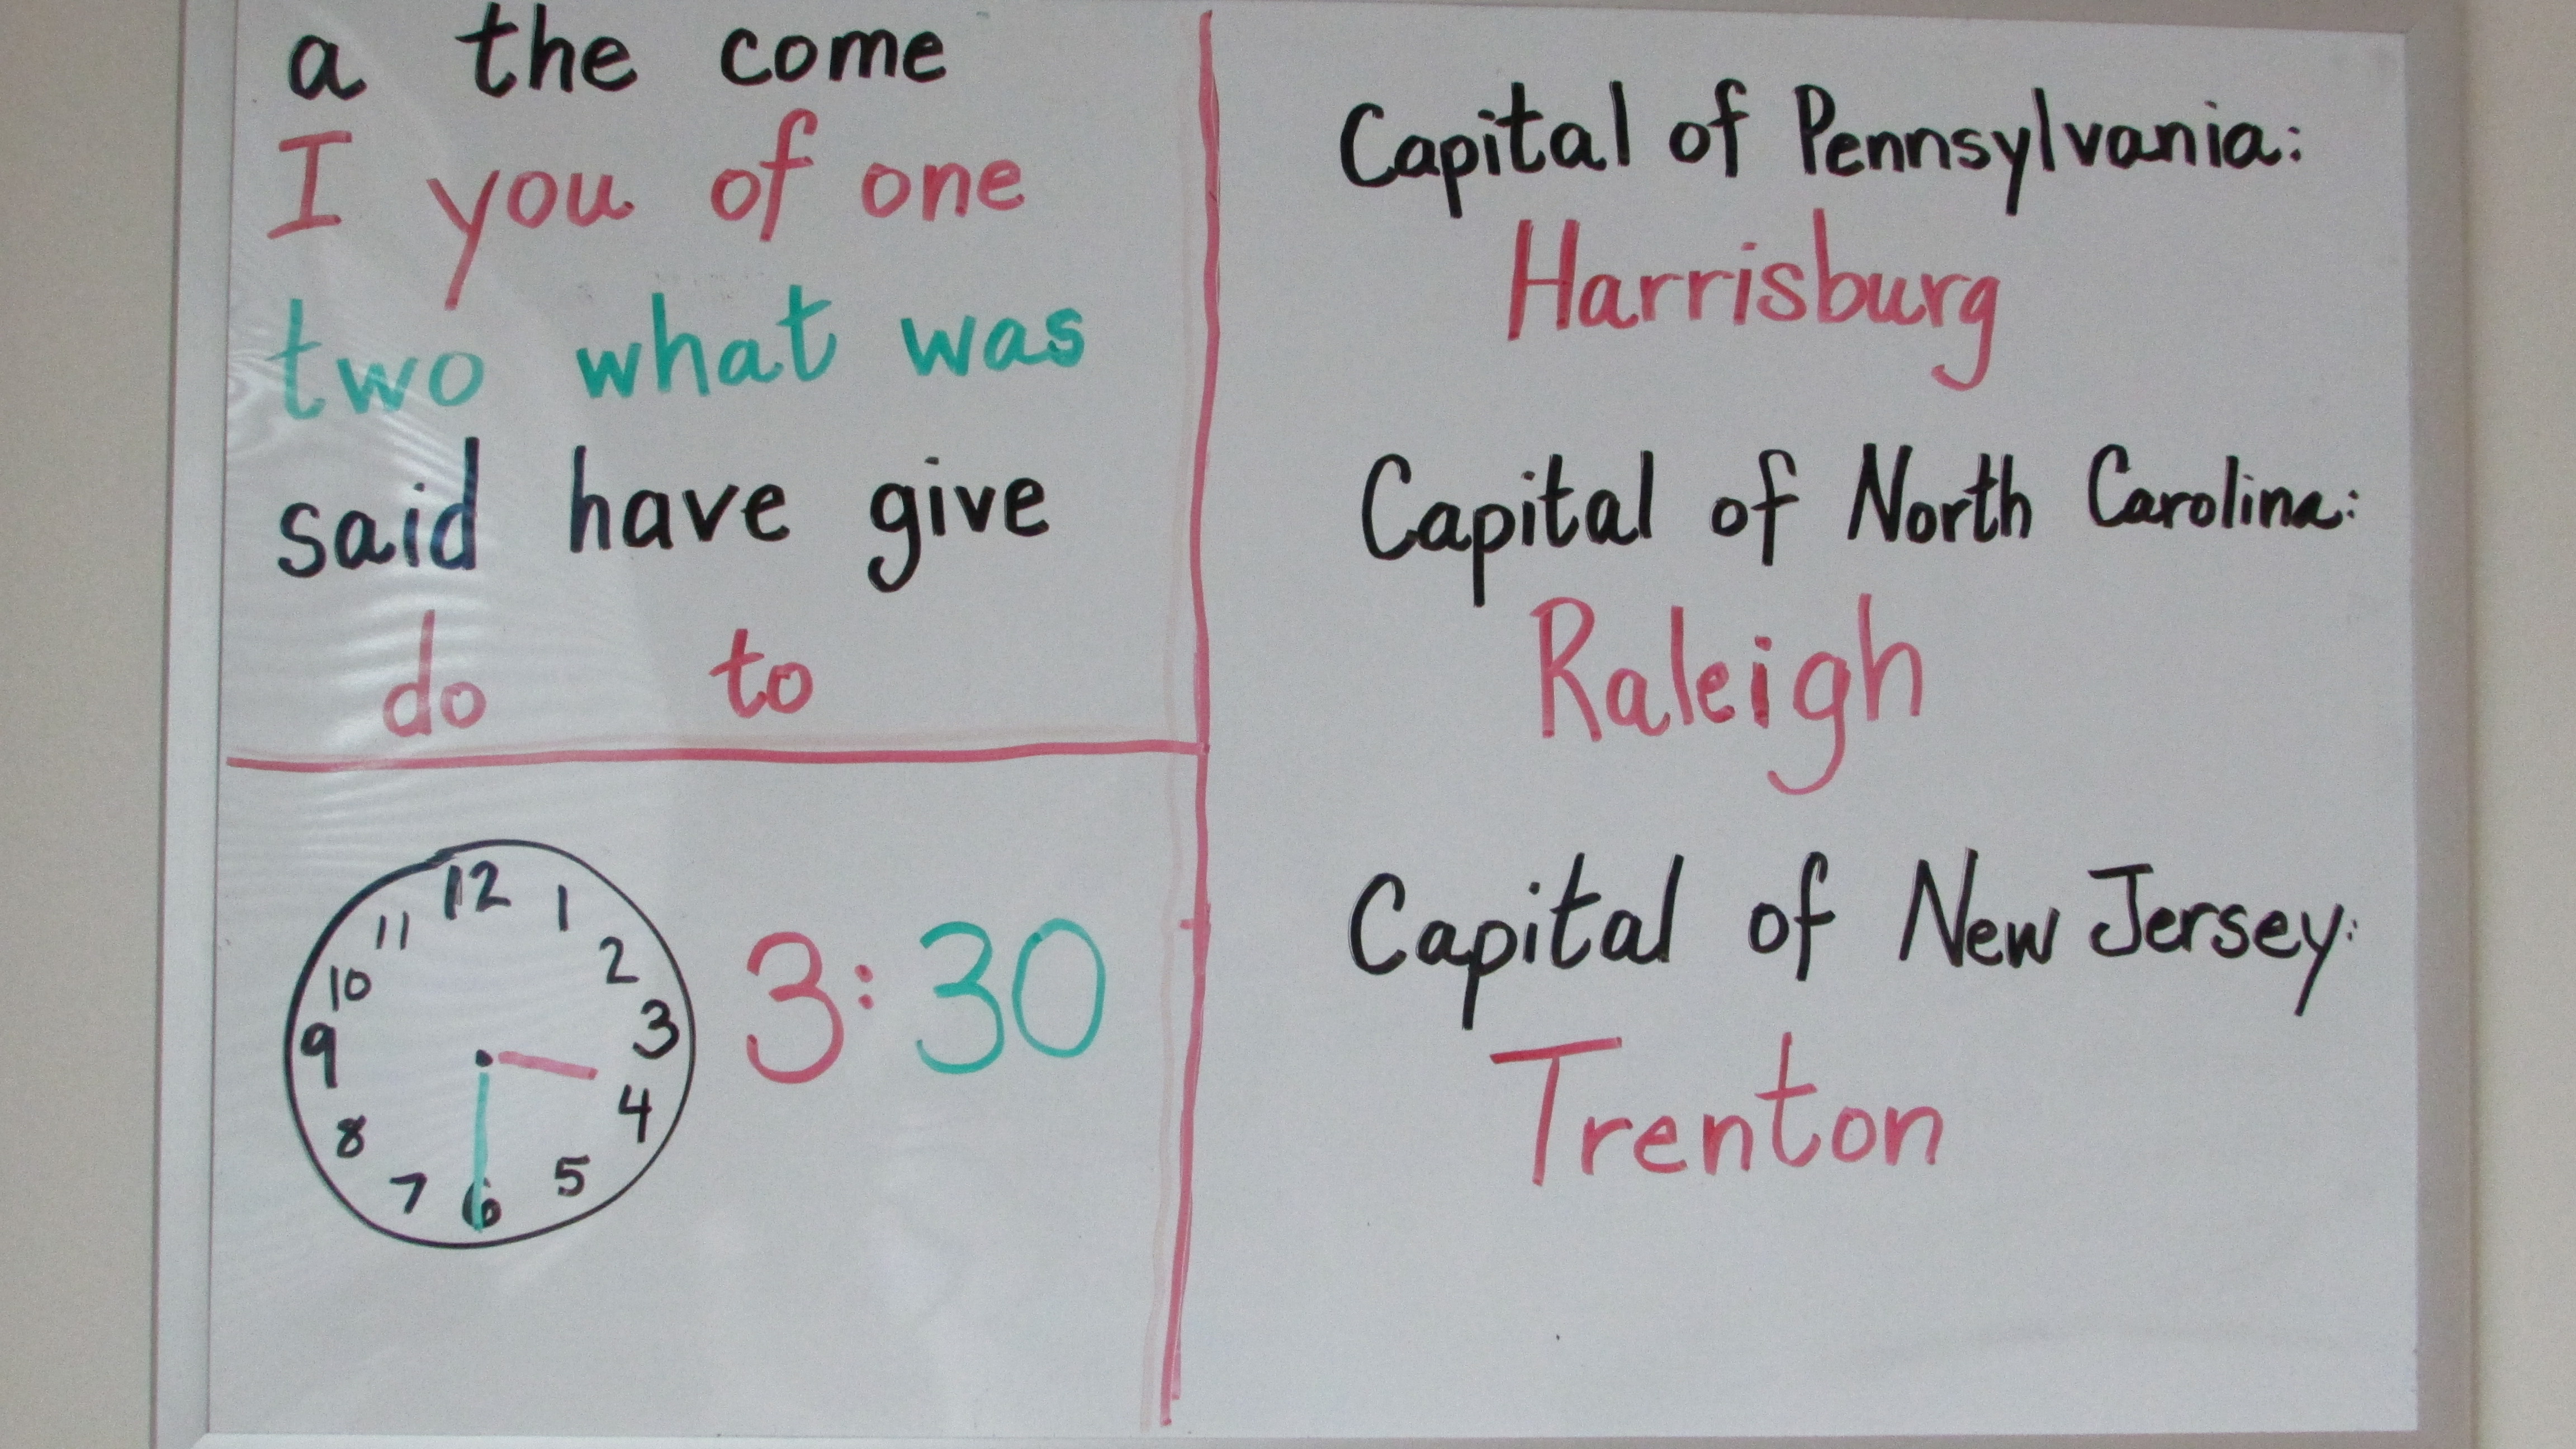 a the come
I you of one
two what was
said have give
do to
12
11 1
10 2
9 3
8 4
7 5
6
3:30
Capital of Pennsylvania:
Harrisburg
Capital of North Carolina:
Raleigh
Capital of New Jersey:
Trenton